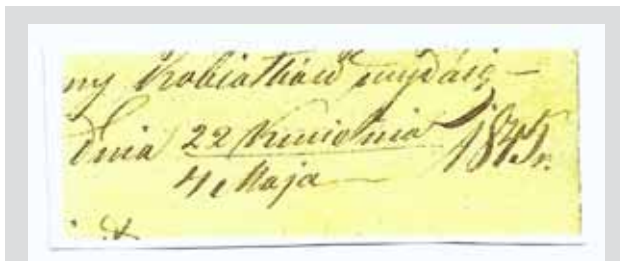 ny Kobiałków
dnia 22 Kwietnia 1845 r.
4 Maja